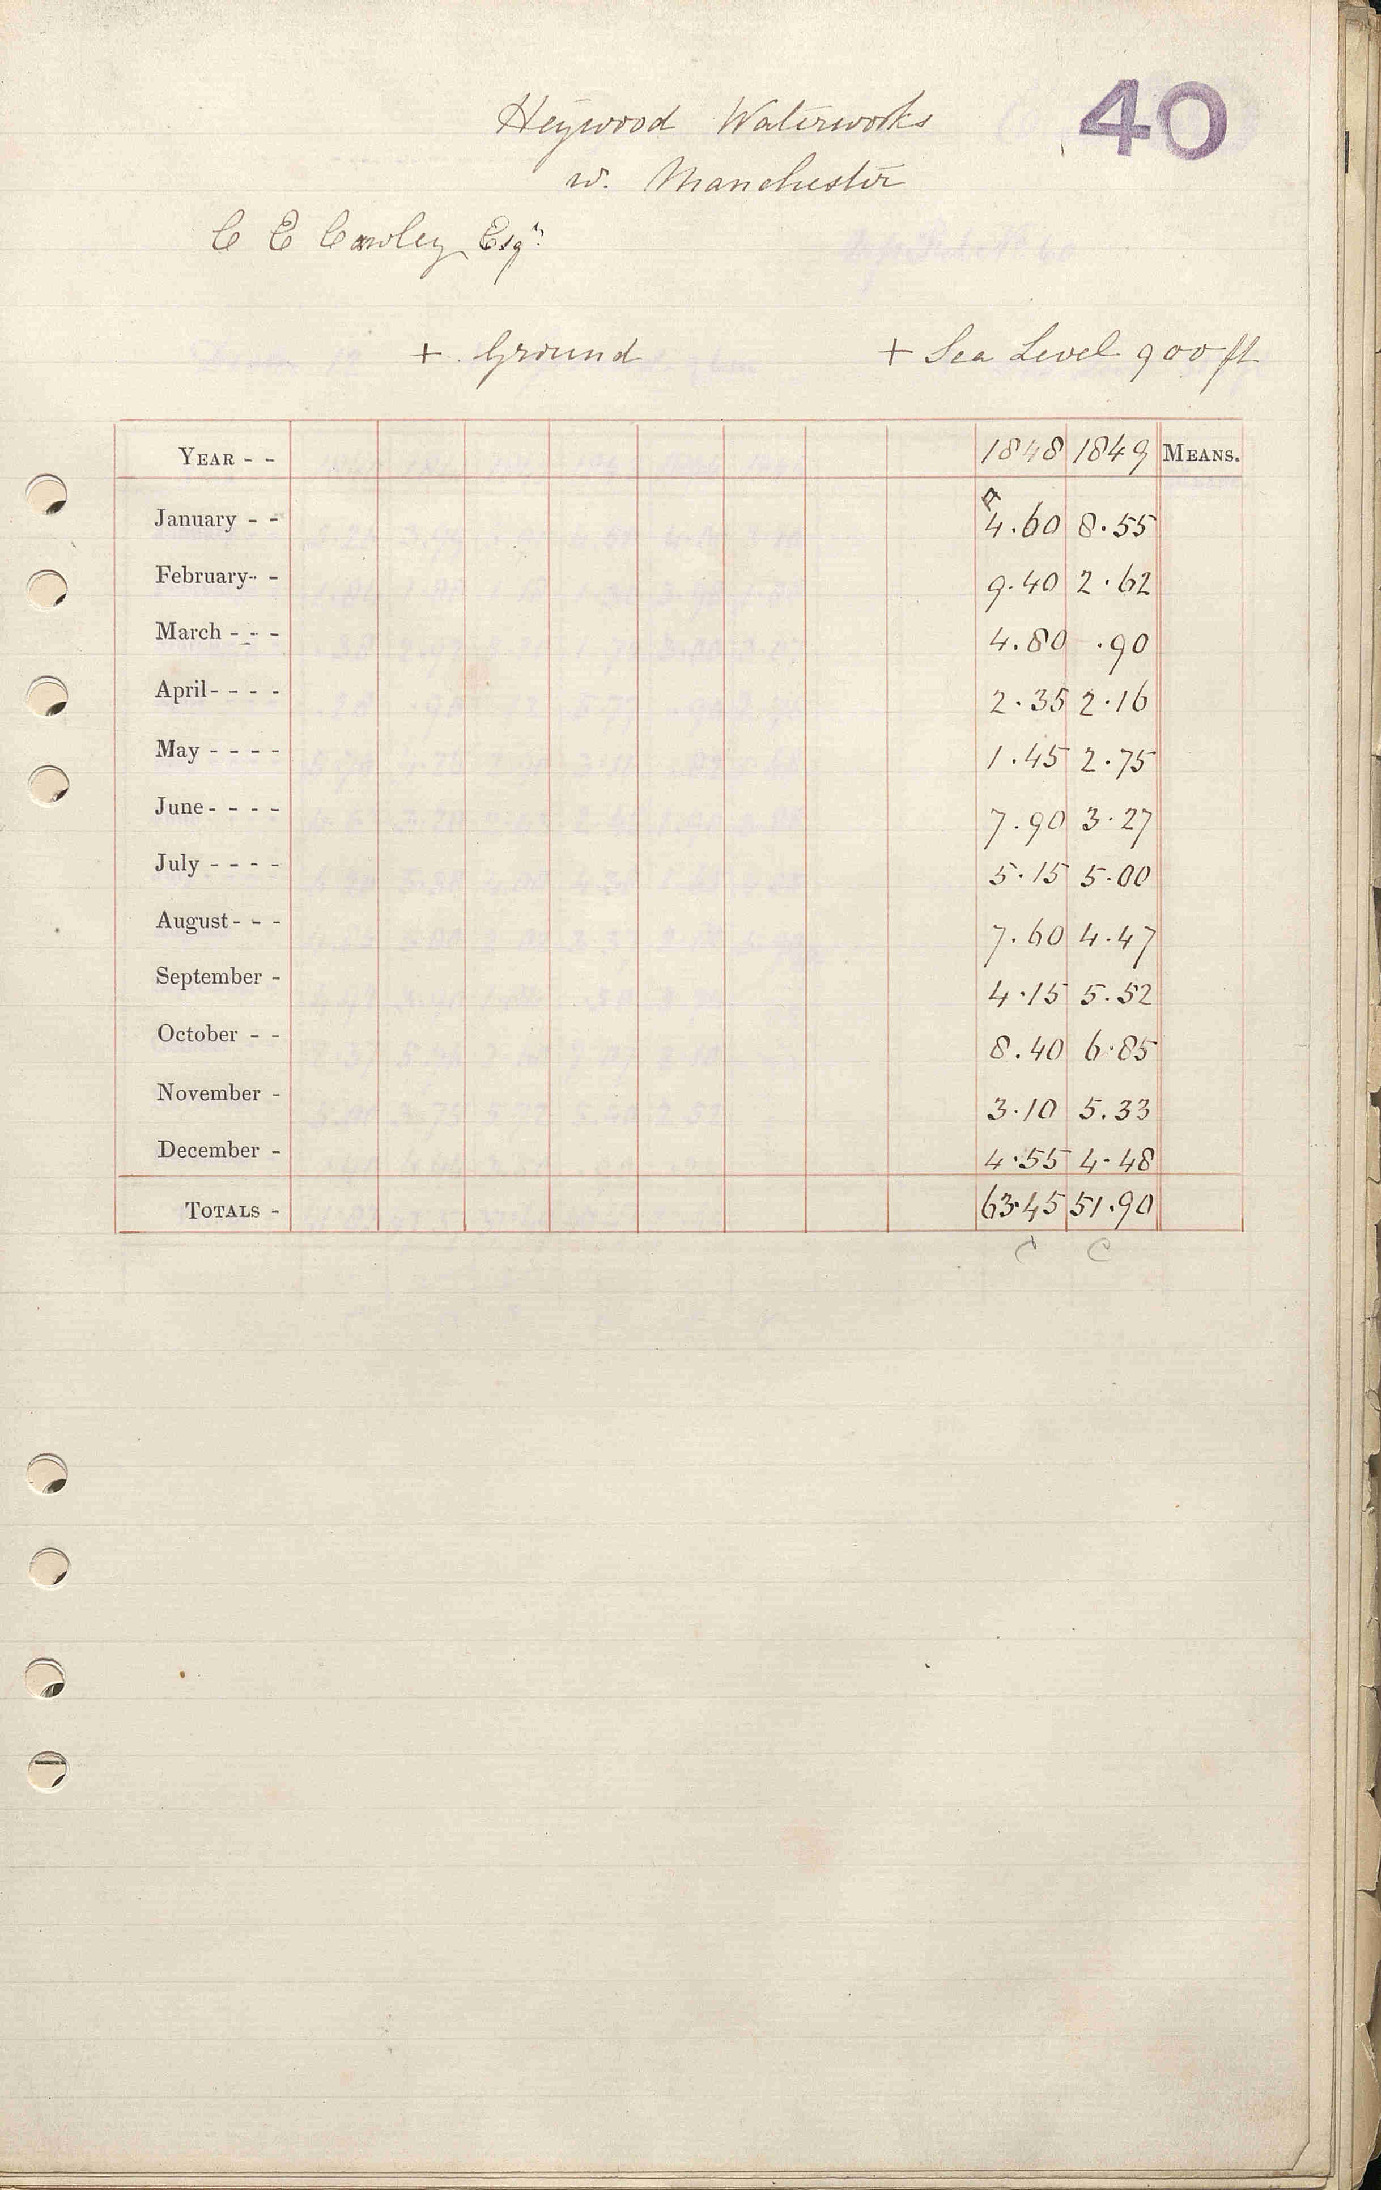 40
Heywood Waterworks
n. Manchester
C E Cawley Esqr.
+ Ground + Sea Level 900 ft
YEAR - - 1848 1849 MEANS.
January - - 4.60 8.55
February - - 9.40 2.62
March - - - 4.80 .90
April - - - - 2.35 2.16
May - - - - 1.45 2.75
June - - - - 7.90 3.27
July - - - - 5.15 5.00
August - - - 7.60 4.47
September - 4.15 5.52
October - - 8.40 6.85
November - 3.10 5.33
December - 4.55 4.48
TOTALS - 63.45 51.90
C C